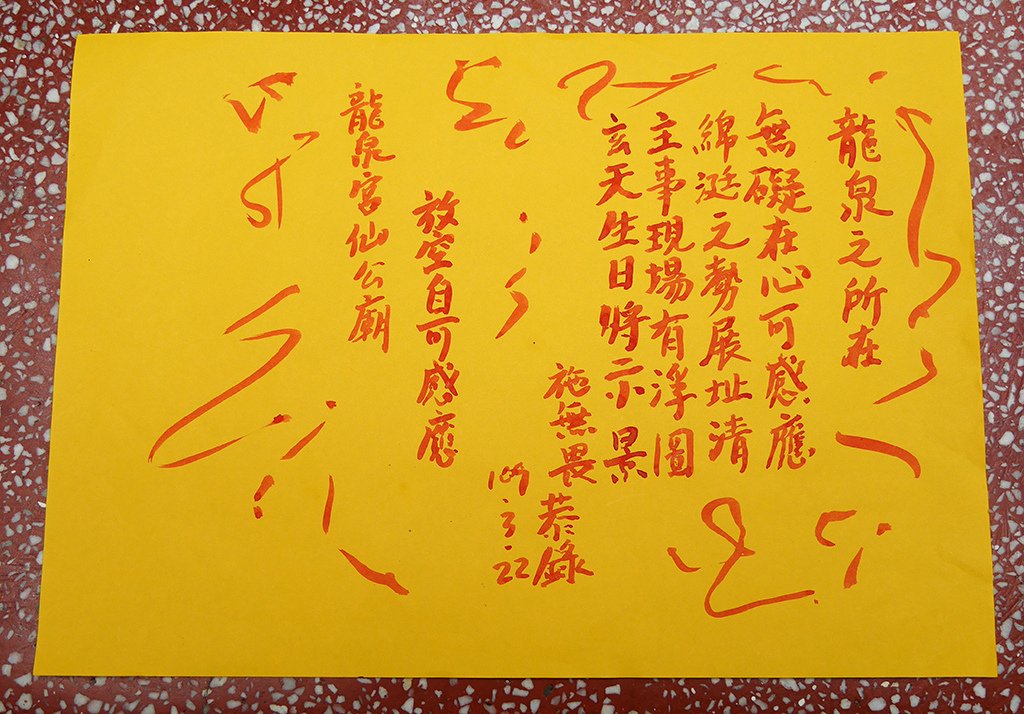 龍泉之所在
無礙在心可感應
綿涎之勢展址清
主事現場有浮圖
玄天生日將示景
施無畏 恭錄
109.3.22
放空自可感應
龍泉宮仙公廟